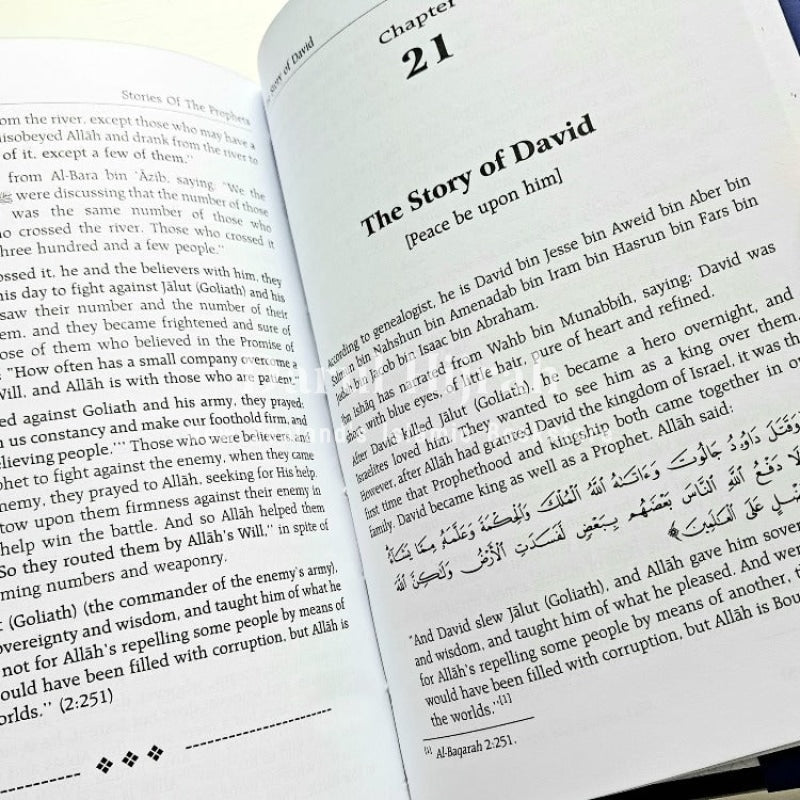 Stories Of The Prophets
om the river, except those who may have a
isobeyed Allāh and drank from the river to
of it, except a few of them."
from Al-Bara bin 'Āzib, saying: "We the
ﷺ were discussing that the number of those
was the same number of those who
o crossed the river. Those who crossed it
hree hundred and a few people."
ossed it, he and the believers with him, they
his day to fight against Jālut (Goliath) and his
saw their number and the number of their
em, and they became frightened and sure of
ose of them who believed in the Promise of
"How often has a small company overcome a
Will, and Allāh is with those who are patient."
ed against Goliath and his army, they prayed:
n us constancy and make our foothold firm, and
elieving people.'" Those who were believers, and
phet to fight against the enemy, when they came
nemy, they prayed to Allāh, seeking for His help.
tow upon them firmness against their enemy in
help win the battle. And so Allāh helped them
So they routed them by Allāh's Will," in spite of
ming numbers and weaponry.
t (Goliath) (the commander of the enemy's army),
overeignty and wisdom, and taught him of what he
not for Allāh's repelling some people by means of
ould have been filled with corruption, but Allāh is
orlds." (2:251)
Story of David
Chapter
21
The Story of David
[Peace be upon him]
According to genealogist, he is David bin Jesse bin Aweid bin Aber bin
bin Nahshun bin Amenadab bin Iram bin Hasrun bin Fars bin
bin Jacob bin Isaac bin Abraham.
Ibn Ishāq has narrated from Wahb bin Munabbih, saying: David was
with blue eyes, of little hair, pure of heart and refined.
After David killed Jālut (Goliath), he became a hero overnight, and
Israelites loved him. They wanted to see him as a king over them.
However, after Allāh had granted David the kingdom of Israel, it was the
first time that Prophethood and kingship both came together in o
family. David became king as well as a Prophet. Allāh said:
وَقَتَلَ دَاوُۥدُ جَالُوتَ وَءَاتَىٰهُ ٱللَّهُ ٱلْمُلْكَ وَٱلْحِكْمَةَ وَعَلَّمَهُۥ مِمَّا يَشَآءُ
لَا دَفْعُ ٱللَّهِ ٱلنَّاسَ بَعْضَهُم بِبَعْضٍ لَّفَسَدَتِ ٱلْأَرْضُ وَلَٰكِنَّ ٱللَّهَ
ضْلٍ عَلَى ٱلْعَٰلَمِينَ
"And David slew Jālut (Goliath), and Allāh gave him sover
and wisdom, and taught him of what he pleased. And wer
for Allāh's repelling some people by means of another, t
would have been filled with corruption, but Allāh is Bou
the worlds."[1]
[1] Al-Baqarah 2:251.
Islamic Bookstore